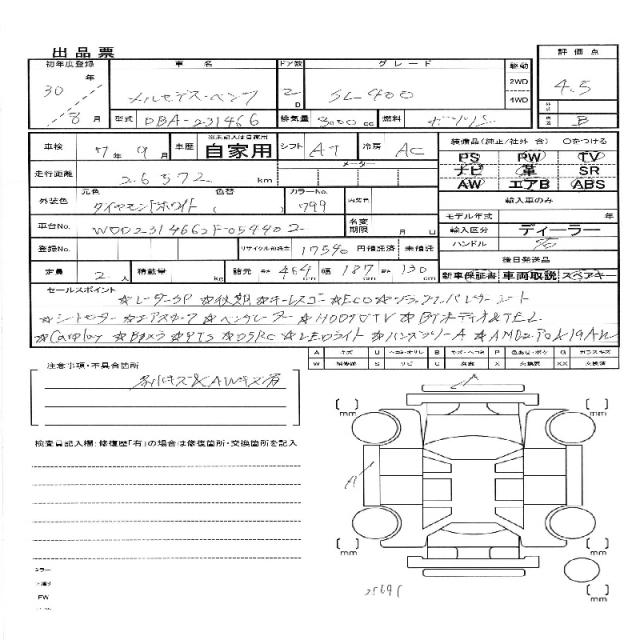 出品票
初年度登録 車名 ドア数 グレード 駆動 評価点
30年 メルセデス・ベンツ 2D SL-400 2WD 4WD 4.5
8月 型式 DBA-231466 排気量 3000cc 燃料 ガソリン B
車検 7年9月 車歴 ※未記入は自家用 自家用 シフト AT 冷房 AC 装備品(純正/社外 含) ○をつける
PS PW TV
走行距離 26572 km メーター ナビ 革 SR
AW エアB ABS
外装色 元色 ダイヤモンドホワイト 色替 カラーNo. 799 内装色 輸入車のみ
モデル年式 年
車台No. WDD2314662F054402 名変期限 月 日 輸入区分 ディーラー
ハンドル 左
登録No. リサイクル預託金 17590 円 預託済 未預託 後日発送品
定員 2人 積載量 kg 諸元 長さ 464 幅 187 高さ 130 cm 新車保証書 車両取説 スペアキー
セールスポイント
☆レーダーSP ☆後期 ☆キーレスゴー ☆ECO ☆ブラックスパレザーシート
☆シートヒーター ☆エアスカーフ ☆ベンチレーター ☆HDDナビTV ☆BTオーディオ&TEL
☆Carplay ☆Bカメラ ☆PTS ☆DSRC ☆LEDライト ☆ハンズフリーA ☆AMG
A キズ U ヘコミ B キズ・ヘコミ P C G ガラスキズ
W 補修跡 S サビ X XX 交換済
注意事項・不具合箇所
キズ&AWキズ有
検査員記入欄:修復歴「有」の場合は修復箇所・交換箇所を記入
A
A
mm
mm
mm
mm
mm
ミラー
FW